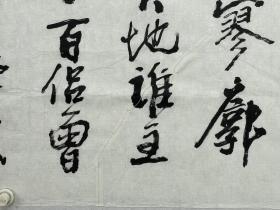 寥廓
地谁主
百侣曾